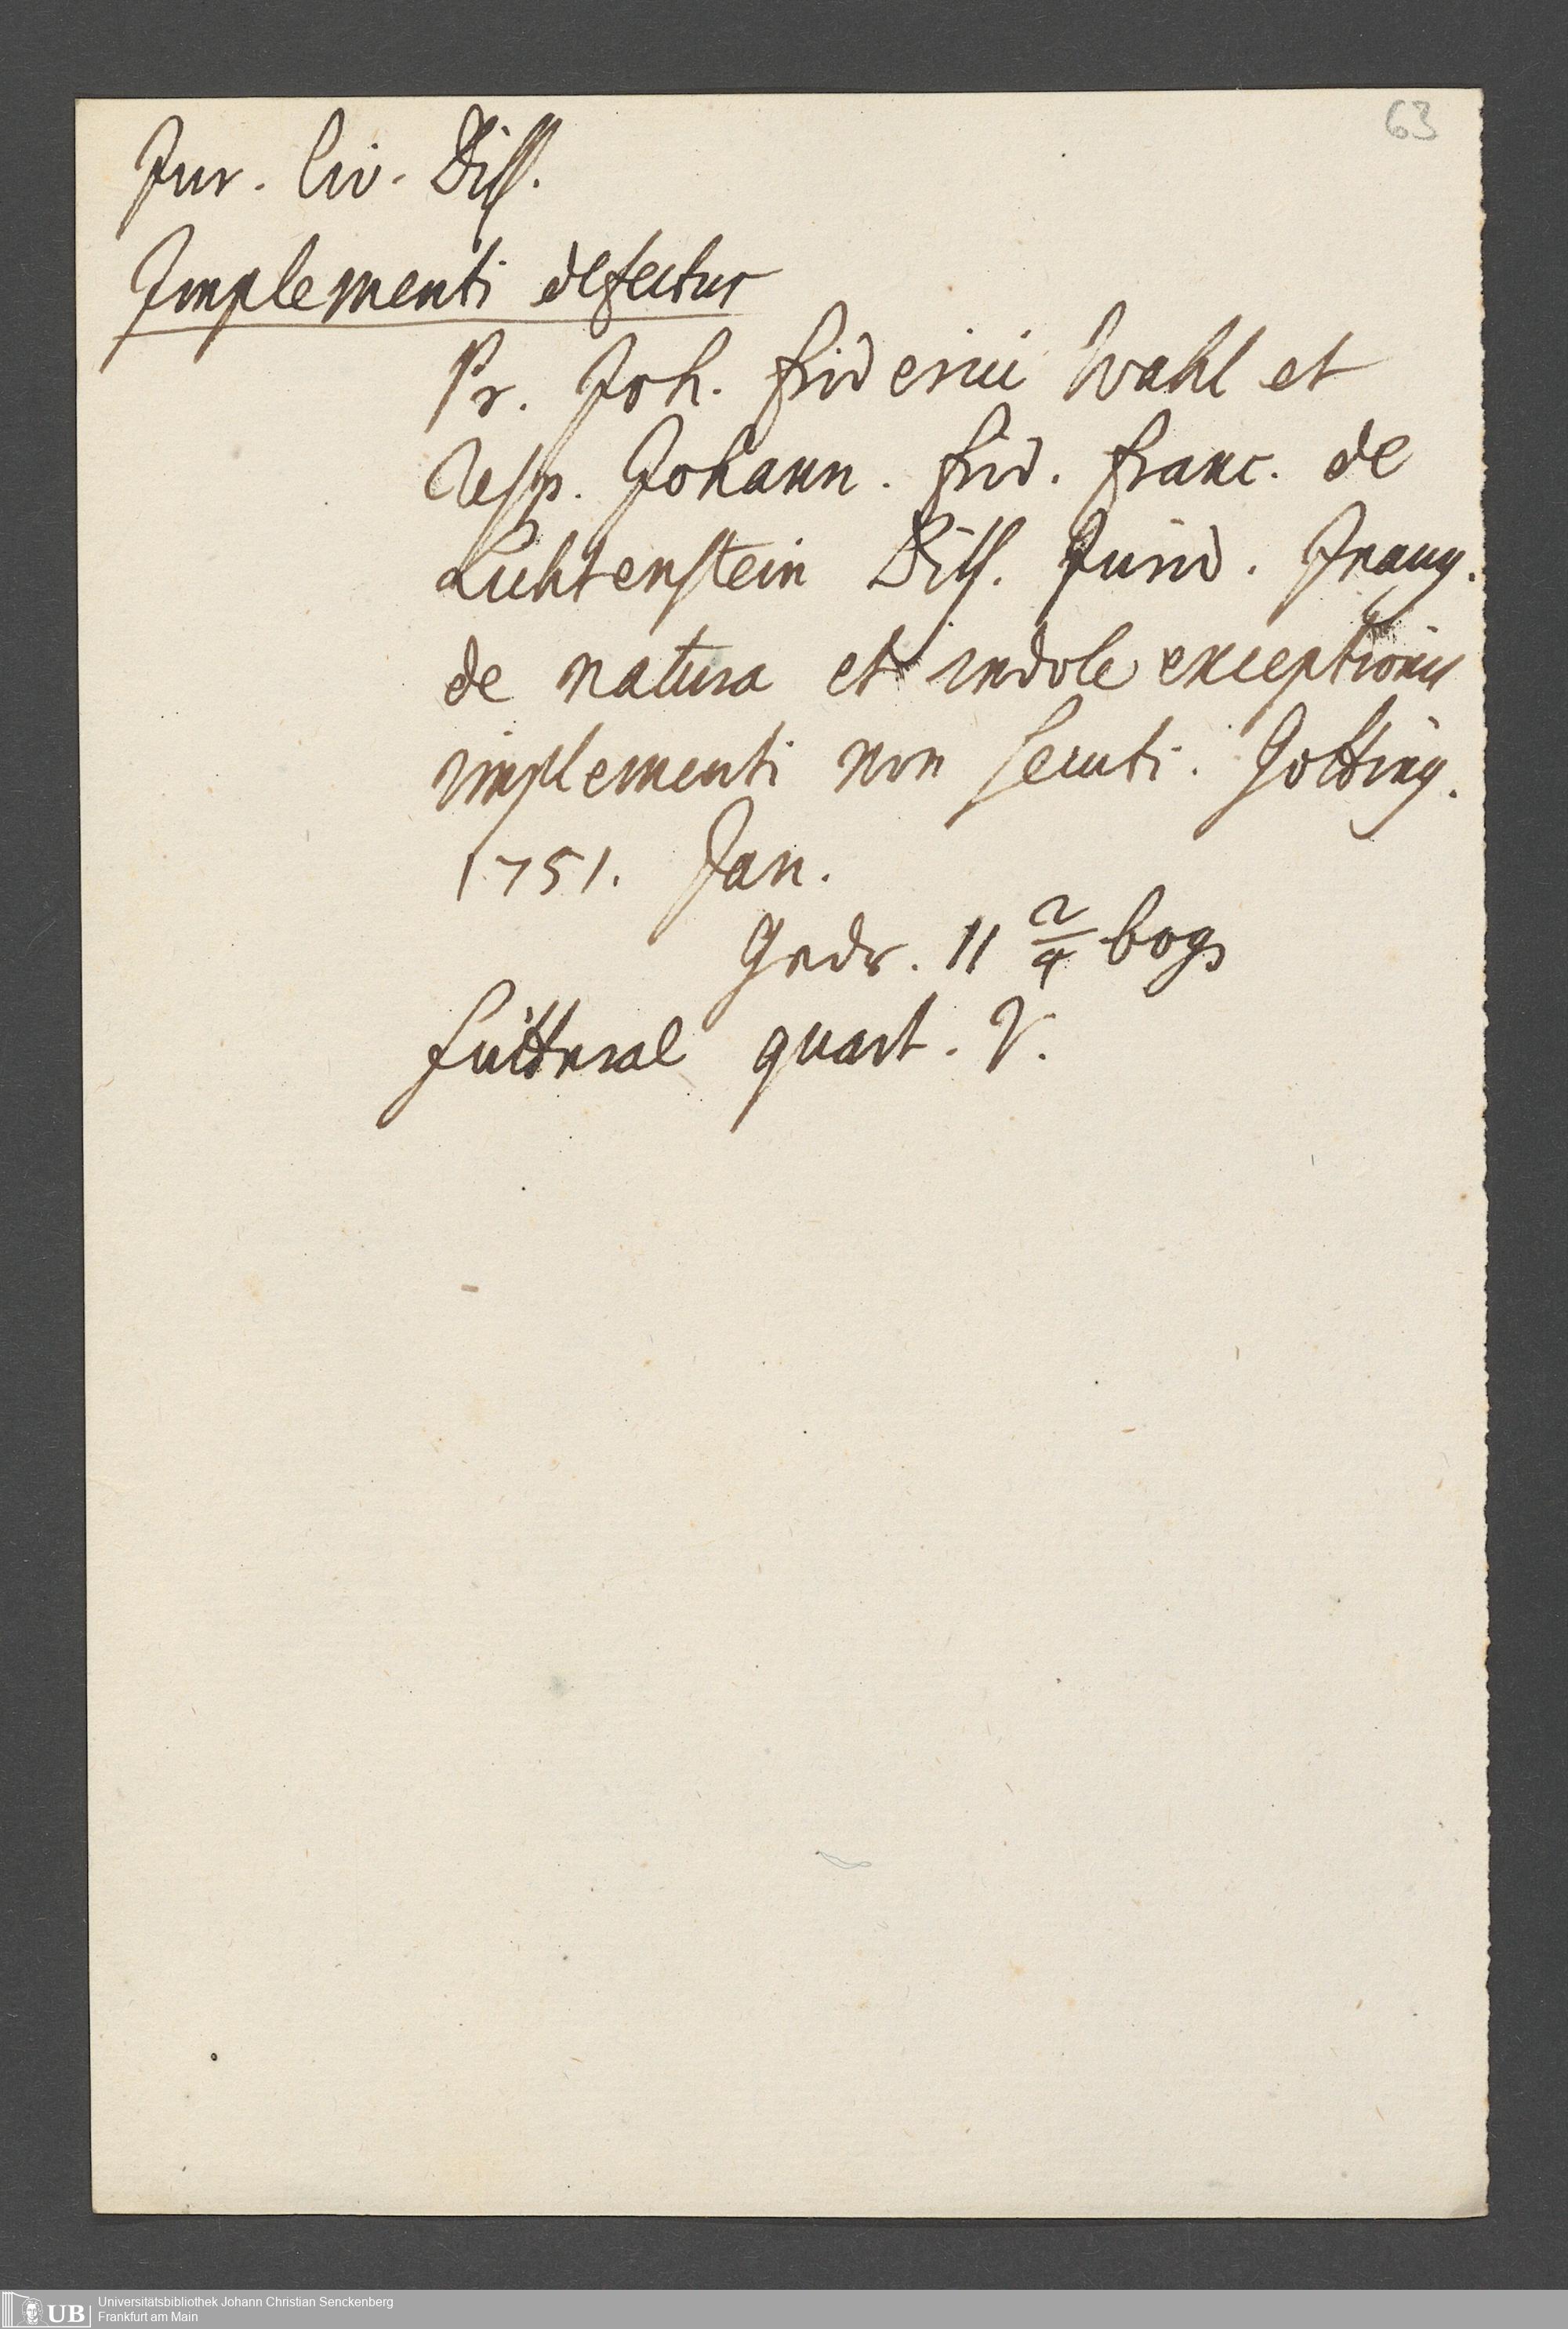 63
Jur. Civ. Diss.
Implementi defectus
Pr. Joh. Friderici Wahl et
Resp. Johann. Frid. Franc. de
Lichtenstein Diss. Jurid. Inaug.
de natura et indole exceptionis
implementi non secuti. Gotting.
1751. Jan.
Gedr. 11 2/4 bog
Futteral quart. V.
UB Universitätsbibliothek Johann Christian Senckenberg
Frankfurt am Main